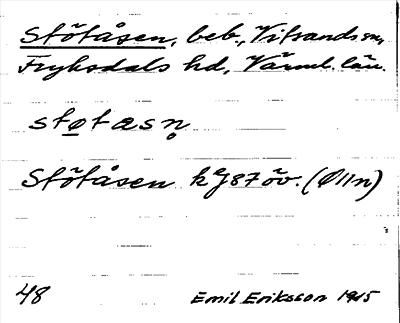 Stötåsen, beb., Vitsands sn,
Fryksdals hd, Värml. län.
støtåsn̥
Stötåsen kg 87 öv. (Ø11n)
48
Emil Eriksson 1915